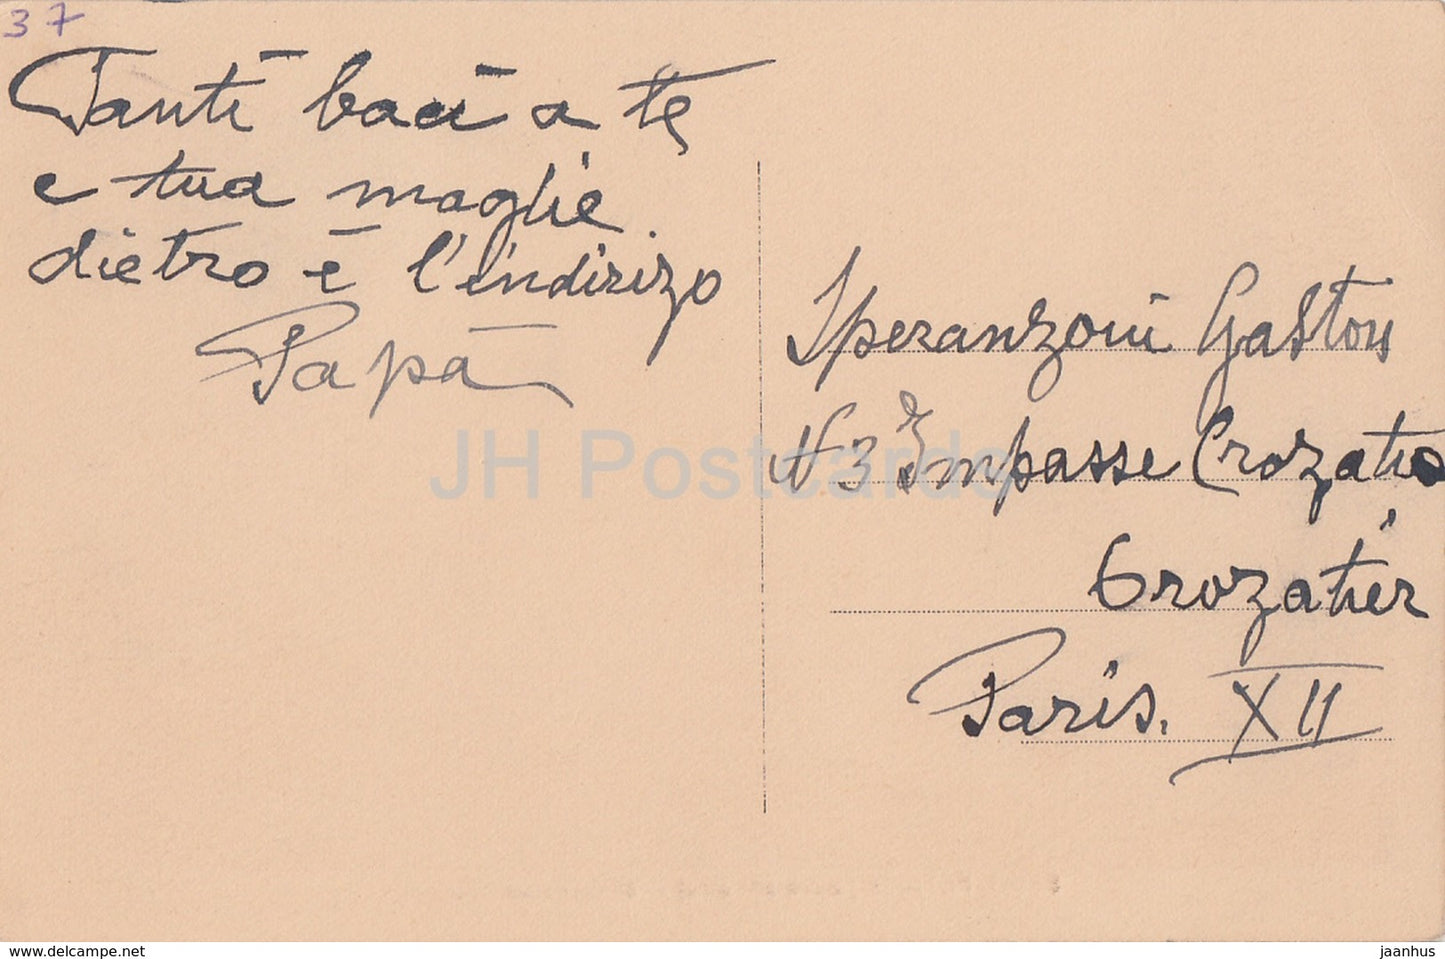 37
Tanti baci a te
e tua moglie
dietro è l'indirizo
Papà
Speranzoni Gaston
N 3 Impasse Crozatie
Crozatier
Paris. XII
JH Postcards
www.delcampe.net
jaanhus